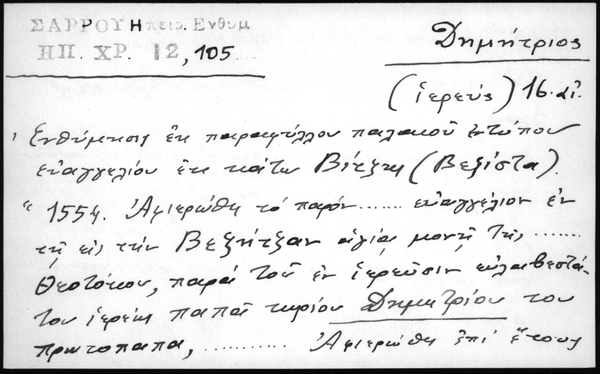 ΣΑΡΡΟΥ Ηπειρ. Ενθυμ
ΗΠ. ΧΡ. 12, 105
Δημήτριος
(ἱερεύς) 16. αἰ.
Ἐνθύμησις ἐκ παραφύλλου παλαιοῦ ἐντύπου
εὐαγγελίου ἐκ κάτω Βίτζης (Βεζίστα).
" 1554. Ἀφιερώθη τό παρόν ....... εὐαγγέλιον ἐν
τῇ εἰς τήν Βεζήτζαν ἁγίᾳ μονῇ τῆς .......
Θεοτόκου, παρά τοῦ ἐν ἱερεῦσιν εὐλαβεστά-
του ἱερέως παπᾶ κυρίου Δημητρίου του
πρωτοπαπα, ............ Ἀφιερώθη ἐπί ἔτους